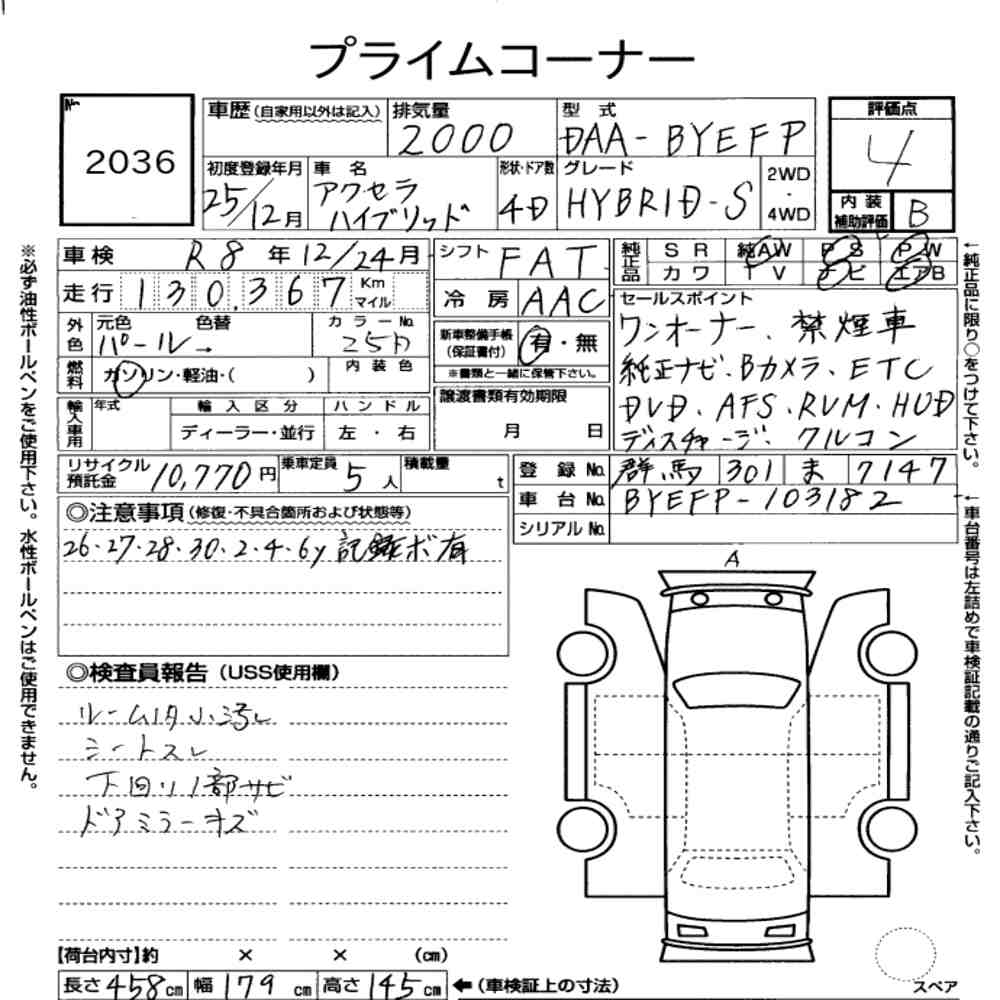 プライムコーナー
No. 2036
車歴 (自家用以外は記入)
排気量 2000
型式 DAA-BYEFP
評価点 4
初度登録年月 25/12月
車名 アクセラ ハイブリッド
形状・ドア数 4D
グレード HYBRID-S
2WD・4WD
内装補助評価 B
車検 R8年12/24月
シフト FAT
純正品 SR 純AW PS PW
カワ TV ナビ エアB
走行 130,367 Km マイル
冷房 AAC
セールスポイント
ワンオーナー、禁煙車
純正ナビ・Bカメラ・ETC
DVD・AFS・RVM・HUD
ディスチャージ・クルコン
外色 元色 パール→ 色替
カラーNo. 25D
新車整備手帳(保証書付) 有・無
※書類と一緒に保管下さい。
燃料 ガソリン・軽油・( )
内装色
輸入車用 年式 輸入区分 ハンドル
ディーラー・並行 左・右
譲渡書類有効期限
月 日
リサイクル預託金 10,770円
乗車定員 5人
積載量 t
登録No. 群馬 301 ま 7147
車台No. BYEFP-103182
シリアルNo.
◎注意事項(修復・不具合箇所および状態等)
26・27・28・30・2・4・6y 記録ボ有
A
◎検査員報告(USS使用欄)
ルーム内小汚れ
シートスレ
下回り1部サビ
ドアミラーキズ
【荷台内寸】約 × × (cm)
長さ 458cm 幅 179cm 高さ 145cm ←(車検証上の寸法)
スペア
※必ず油性ボールペンをご使用下さい。水性ボールペンはご使用できません。
←純正品に限り○をつけて下さい。
←車台番号は左詰めで車検証記載の通りご記入下さい。